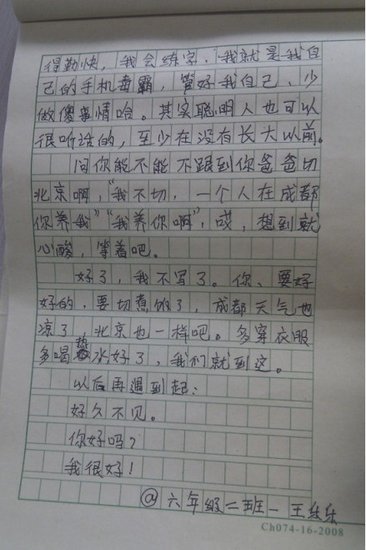 得勤快,我会练字,“我就是我自
己的手机毒霸,管好我自己、少
做傻事情哈。其实聪明人也可以
很听话的,至少在没有长大以前。
问你能不能不跟到你爸爸切
北京啊,“我不切,一个人在成都
你养我”“我养你啊”,哎,想到就
心酸,等着吧。
好了,我不写了。你、要好
好的,要切煮饭了,成都天气也
凉了,北京也一样吧。多穿衣服
多喝热水好了,我们就到这。
以后再遇到起:
好久不见。
你好吗?
我很好!
@六年级二班一王
Ch074-16-2008